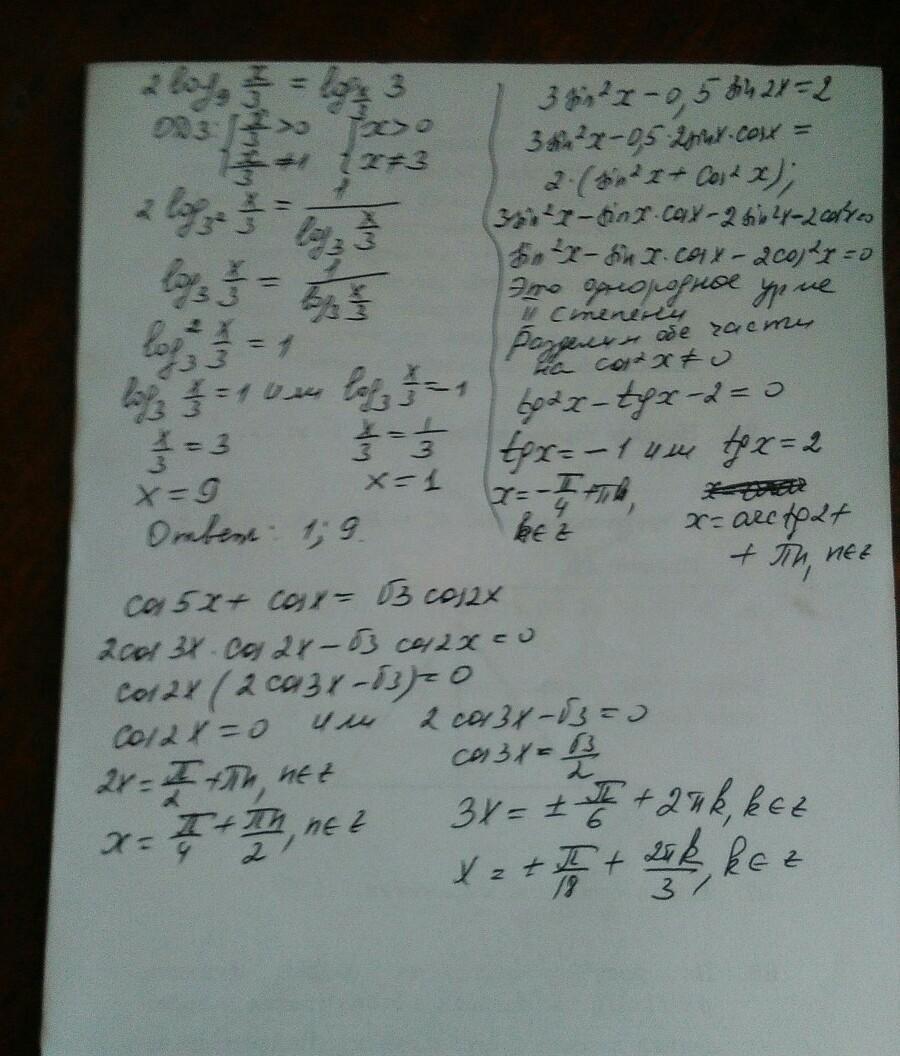 2 log₉ x/3 = log_{x/3} 3
ОДЗ: { x/3 > 0 { x > 0
{ x/3 ≠ 1 { x ≠ 3
2 log_{3²} x/3 = 1/(log₃ x/3)
log₃ x/3 = 1/(log₃ x/3)
log₃² x/3 = 1
log₃ x/3 = 1 или log₃ x/3 = -1
x/3 = 3 x/3 = 1/3
x = 9 x = 1
Ответ: 1; 9.
3 sin²x - 0,5 sin 2x = 2
3 sin²x - 0,5·2 sinx·cosx =
2·(sin²x + cos²x);
3sin²x - sinx·cosx - 2sin²x - 2cos²x=0
sin²x - sin x·cosx - 2cos²x = 0
Это однородное ур-ие
II степени
Разделим обе части
на cos²x ≠ 0
tg²x - tgx - 2 = 0
tgx = -1 или tgx = 2
x = -π/4 + πk, x = arctg2 +
k∈z + πn, n∈z
cos 5x + cosx = √3 cos2x
2cos 3x · cos 2x - √3 cos2x = 0
cos2x (2 cos3x - √3) = 0
cos2x = 0 или 2 cos3x - √3 = 0
2x = π/2 + πn, n∈z cos3x = √3/2
x = π/4 + πn/2, n∈z 3x = ± π/6 + 2πk, k∈z
x = ± π/18 + 2πk/3, k∈z